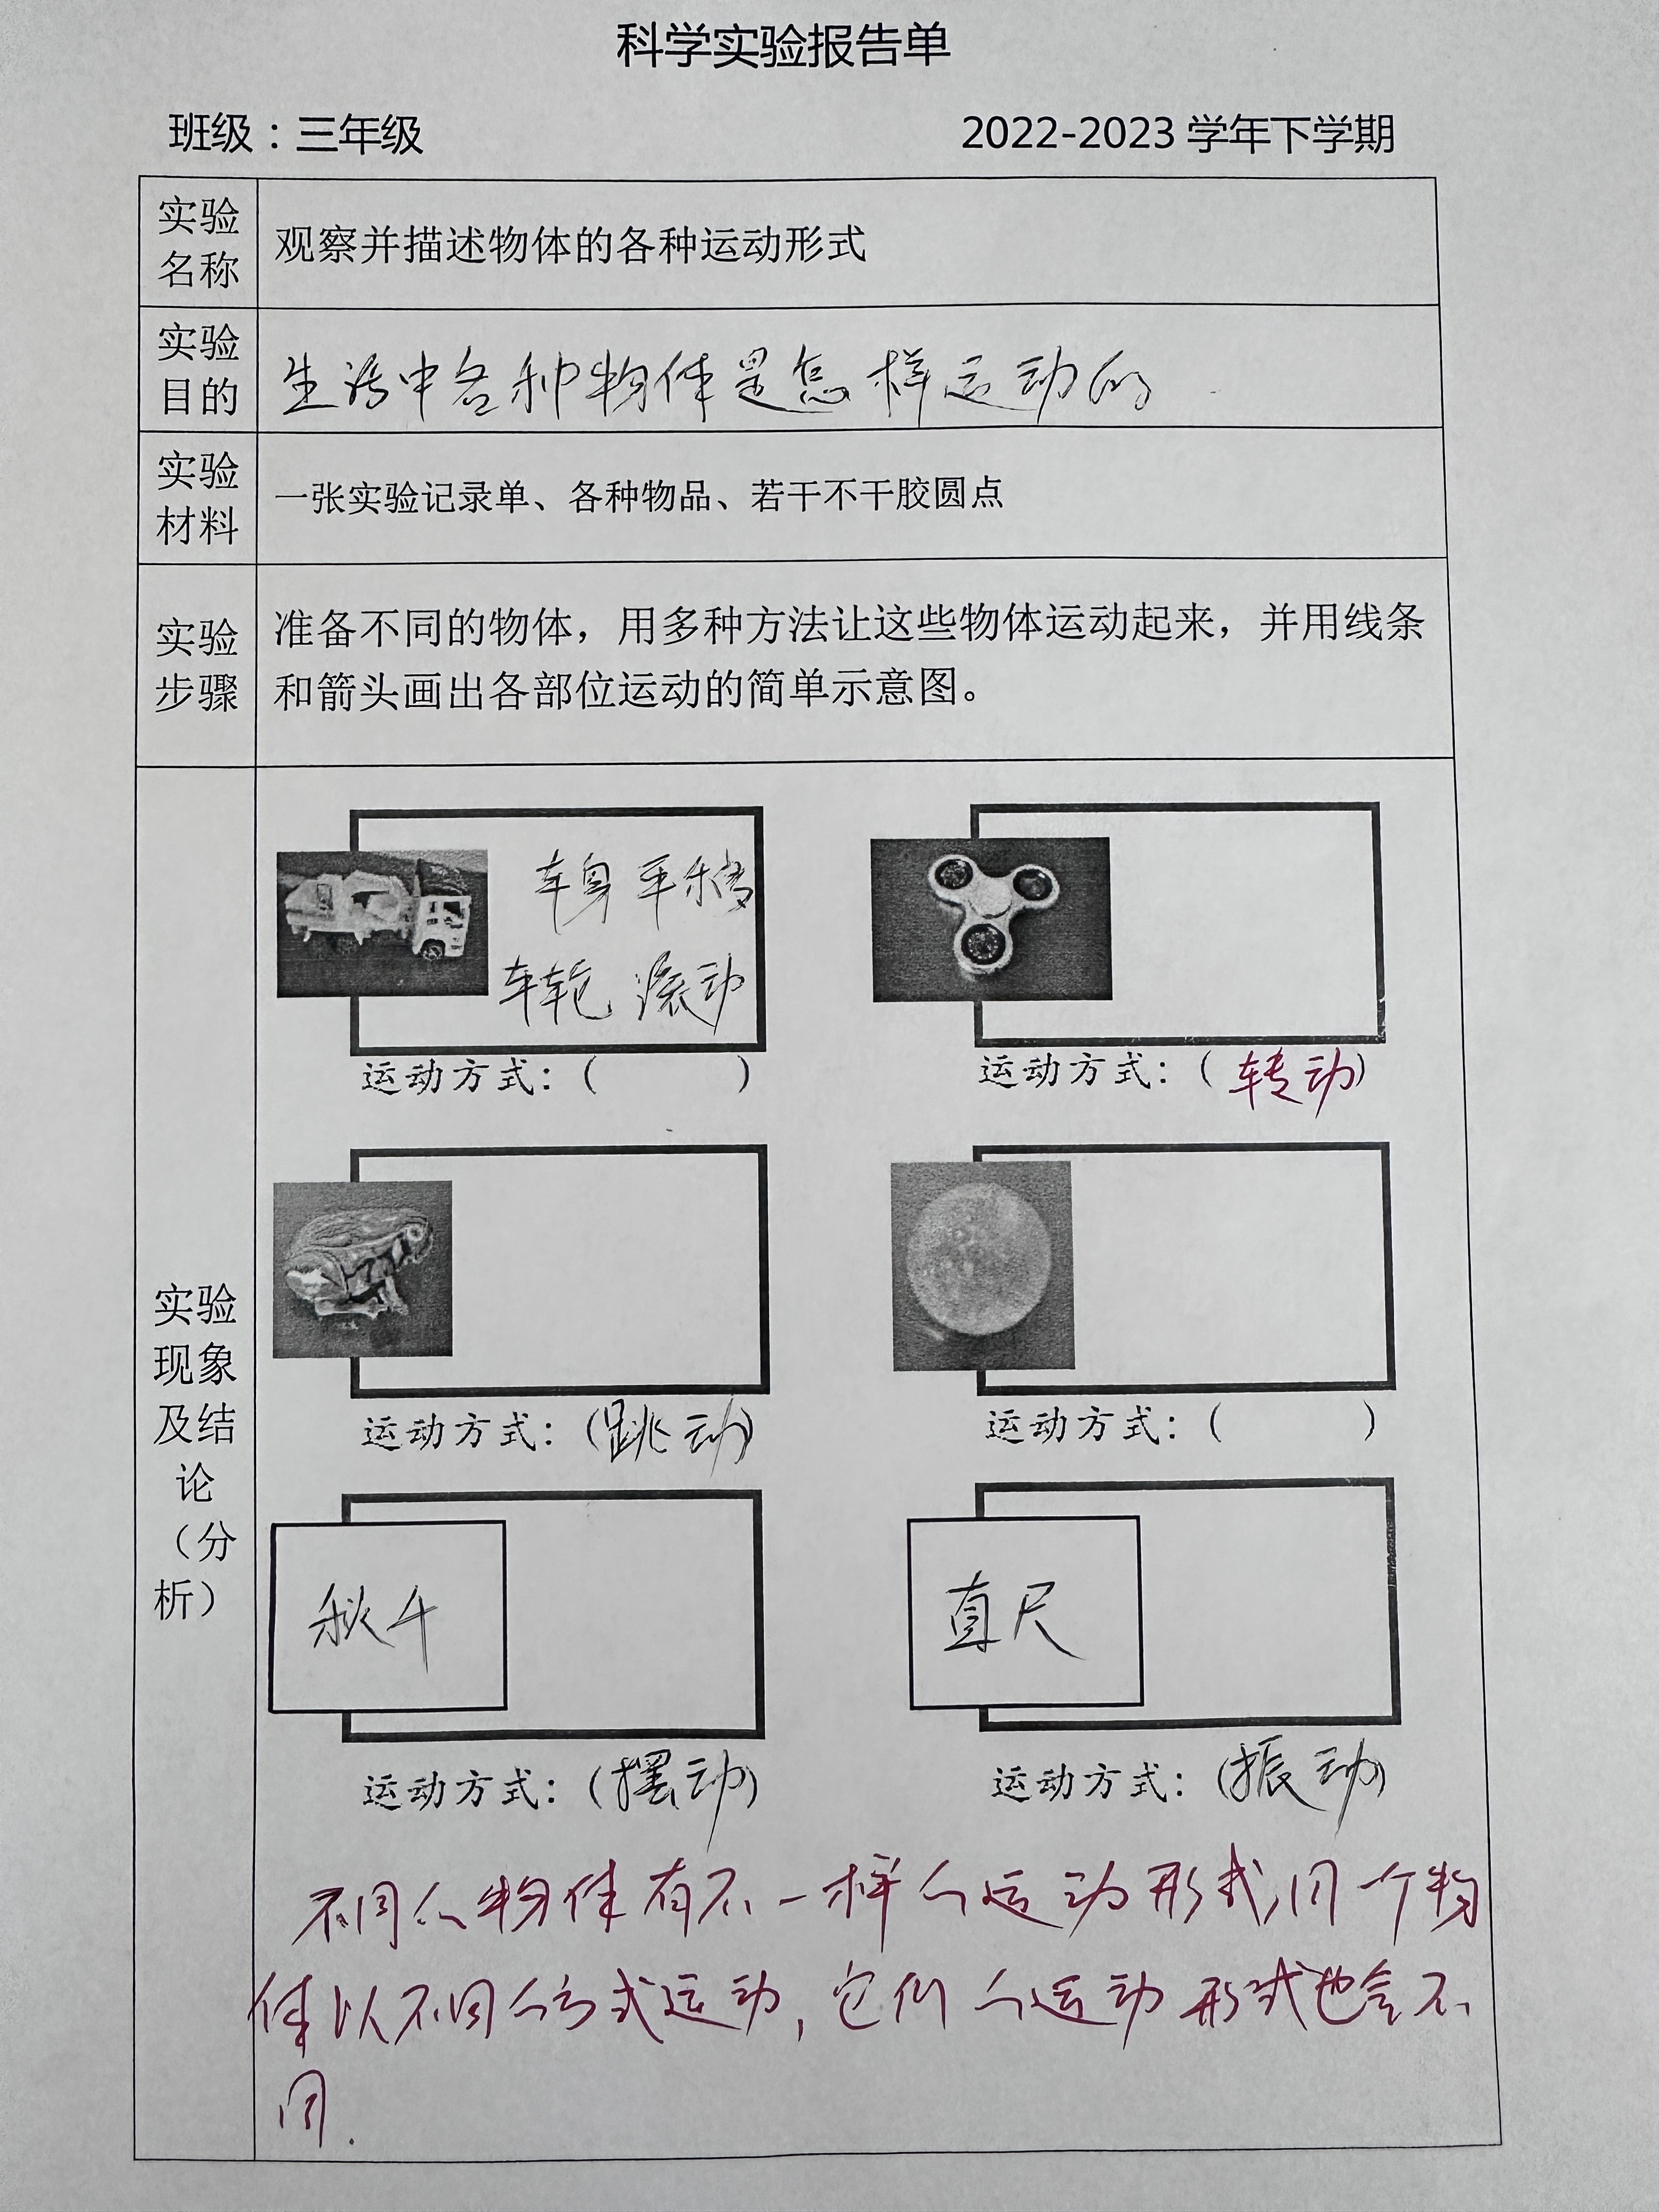 科学实验报告单
班级：三年级 2022-2023 学年下学期
实验
名称
观察并描述物体的各种运动形式
实验
目的
生活中各种物体是怎样运动的
实验
材料
一张实验记录单、各种物品、若干不干胶圆点
实验
步骤
准备不同的物体，用多种方法让这些物体运动起来，并用线条
和箭头画出各部位运动的简单示意图。
实验
现象
及结
论
（分
析）
车身 平移
车轮 滚动
运动方式：（ ）
运动方式：（转动）
运动方式：（跳动）
运动方式：（ ）
秋千
直尺
运动方式：（摆动）
运动方式：（振动）
不同的物体有不一样的运动形式，同一个物
体以不同的方式运动，它们的运动形式也会不
同.